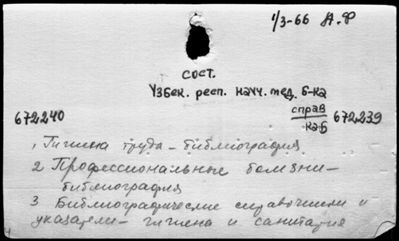 1/3-66 А.Ф
сост.
Узбек. респ. науч. мед. б-ка
справ
каб
672240
672239
1, Гигиена труда - библиография
2 Профессиональные болезни -
библиография
3 Библиографические справочники и
указатели - гигиена и санитария